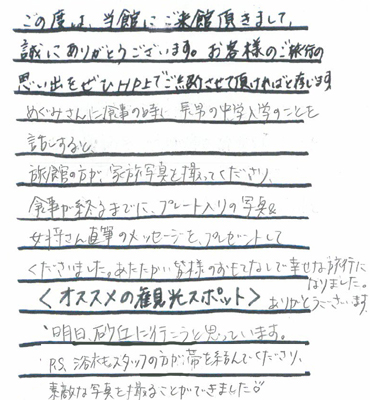 この度は、当館にご来館頂きまして、
誠にありがとうございます。お客様のご旅行の
思い出をぜひHP上でご紹介させて頂ければと存じます
めぐみさんに食事の時に長男の中学入学のことを
話しすると、
旅館の方が、家族写真を撮ってくださり、
食事が終るまでに、プレート入りの写真&
女将さん直筆のメッセージを、プレゼントして
くださいました。あたたかい皆様のおもてなしで幸せな旅行に
なりました。
ありがとうございます。
<オススメの観光スポット>
・明日、砂丘に行こうと思っています。
P.S. 浴衣もスタッフの方が帯を結んでくださり、
素敵な写真を撮ることができました♡